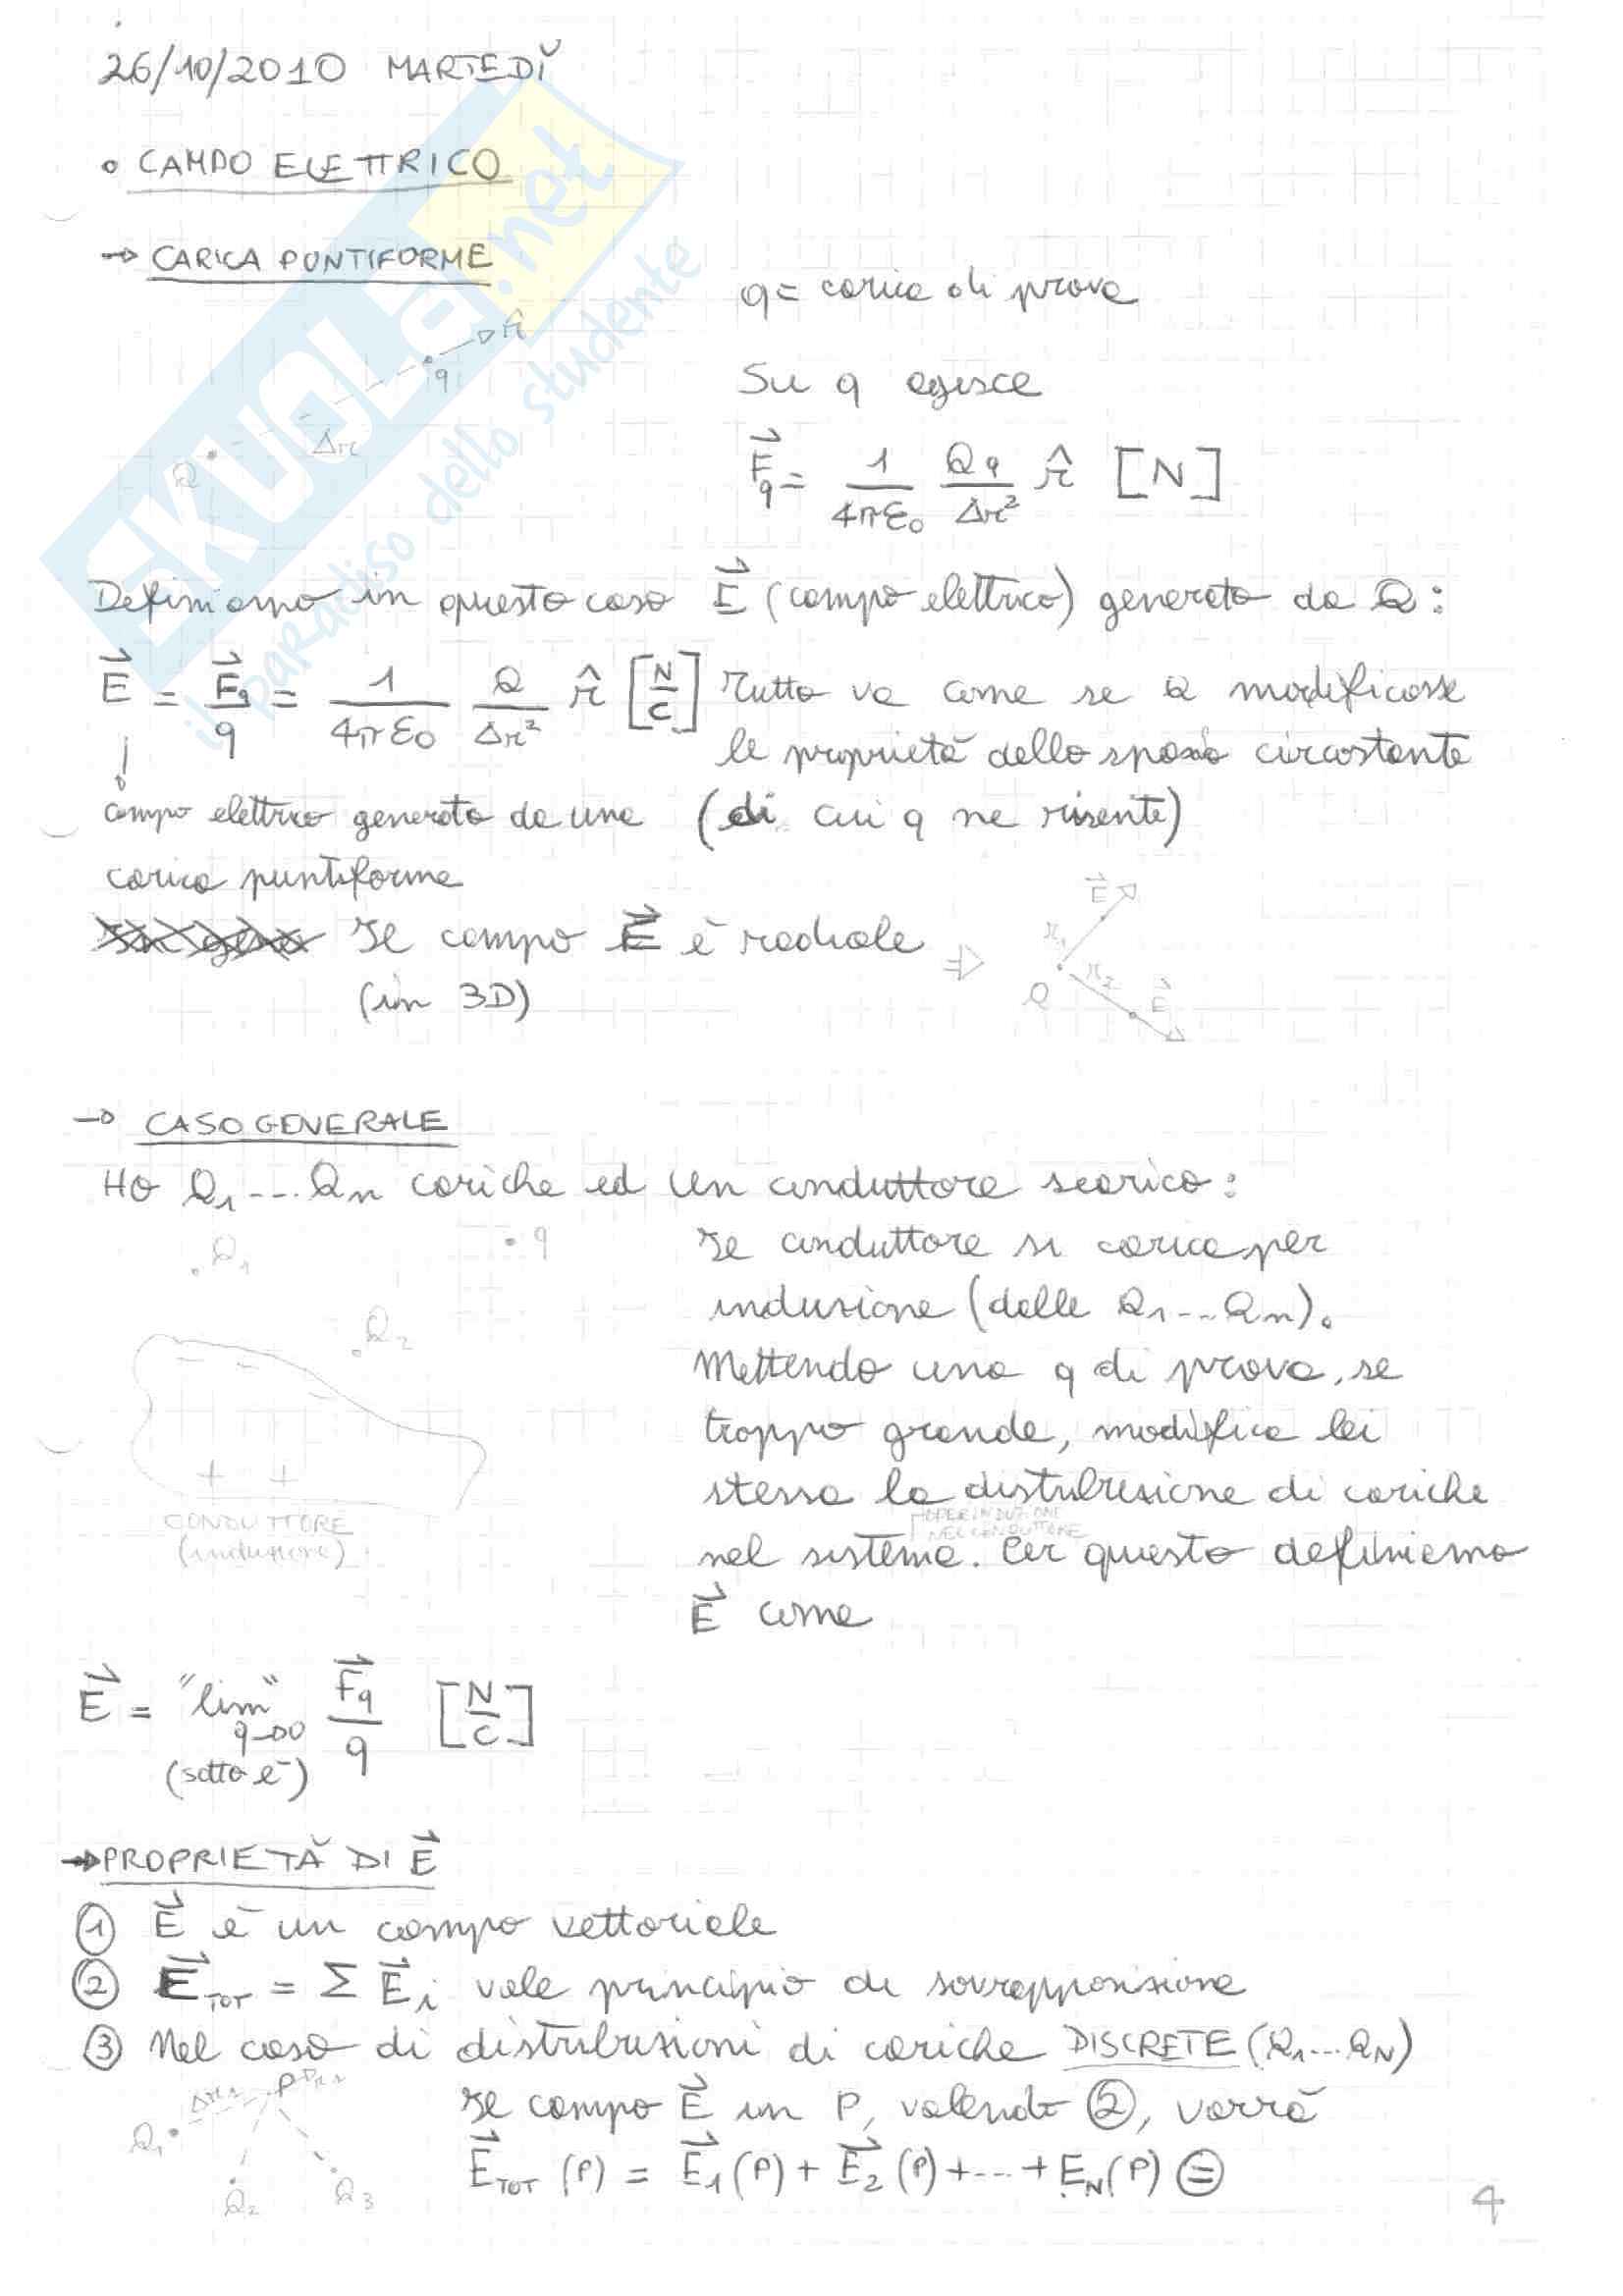 26/10/2010 MARTEDĬ
• CAMPO ELETTRICO
→ CARICA PUNTIFORME
q = carica di prova
r̂
q
Δr
Q
Su q agisce
F⃗q = 1/4πε₀ Qq/Δr² r̂ [N]
Definiamo in questo caso E⃗ (campo elettrico) generato da Q:
E⃗ = F⃗q/q = 1/4πε₀ Q/Δr² r̂ [N/C] Tutto va come se Q modificasse
le proprietà dello spazio circostante
campo elettrico generato da una (di cui q ne risente)
carica puntiforme
Il campo E⃗ è radiale ⇒
(in 3D)
E⃗
r₁
Q
r₂
E⃗
→ CASO GENERALE
HO Q₁ --- Qn cariche ed un conduttore scarico:
Q₁
• q
Q₂
– – – –
+ +
CONDUTTORE
(induzione)
Il conduttore si carica per
induzione (delle Q₁ --- Qn).
Mettendo una q di prova, se
troppo grande, modifica lei
stessa la distribuzione di cariche
PER INDUZIONE
NEL CONDUTTORE
nel sistema. Per questo definiamo
E⃗ come
E⃗ = "lim" q→0 F⃗q/q [N/C]
(sotto e⁻)
→ PROPRIETĂ DI E⃗
① E⃗ è un campo vettoriale
② E⃗TOT = Σ E⃗i vale principio di sovrapposizione
③ Nel caso di distribuzioni di cariche DISCRETE (Q₁ --- QN)
Δr₁
P
Q₁
Q₂
Q₃
Il campo E⃗ in P, valendo ②, varrà
E⃗TOT (P) = E⃗₁(P) + E⃗₂(P) + --- + EN(P) ⊜
4
SKUOLA.net
il paradiso dello studente